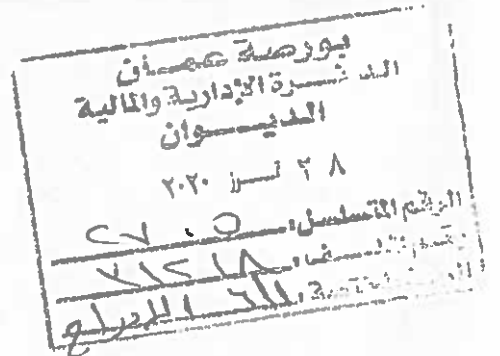 بورصة عمان
الدائرة الإدارية والمالية
الديوان
٢٨ تموز ٢٠٢٠
الرقم المتسلسل: ٢٧٠٥
رقم الملف:
الجهة المختصة: